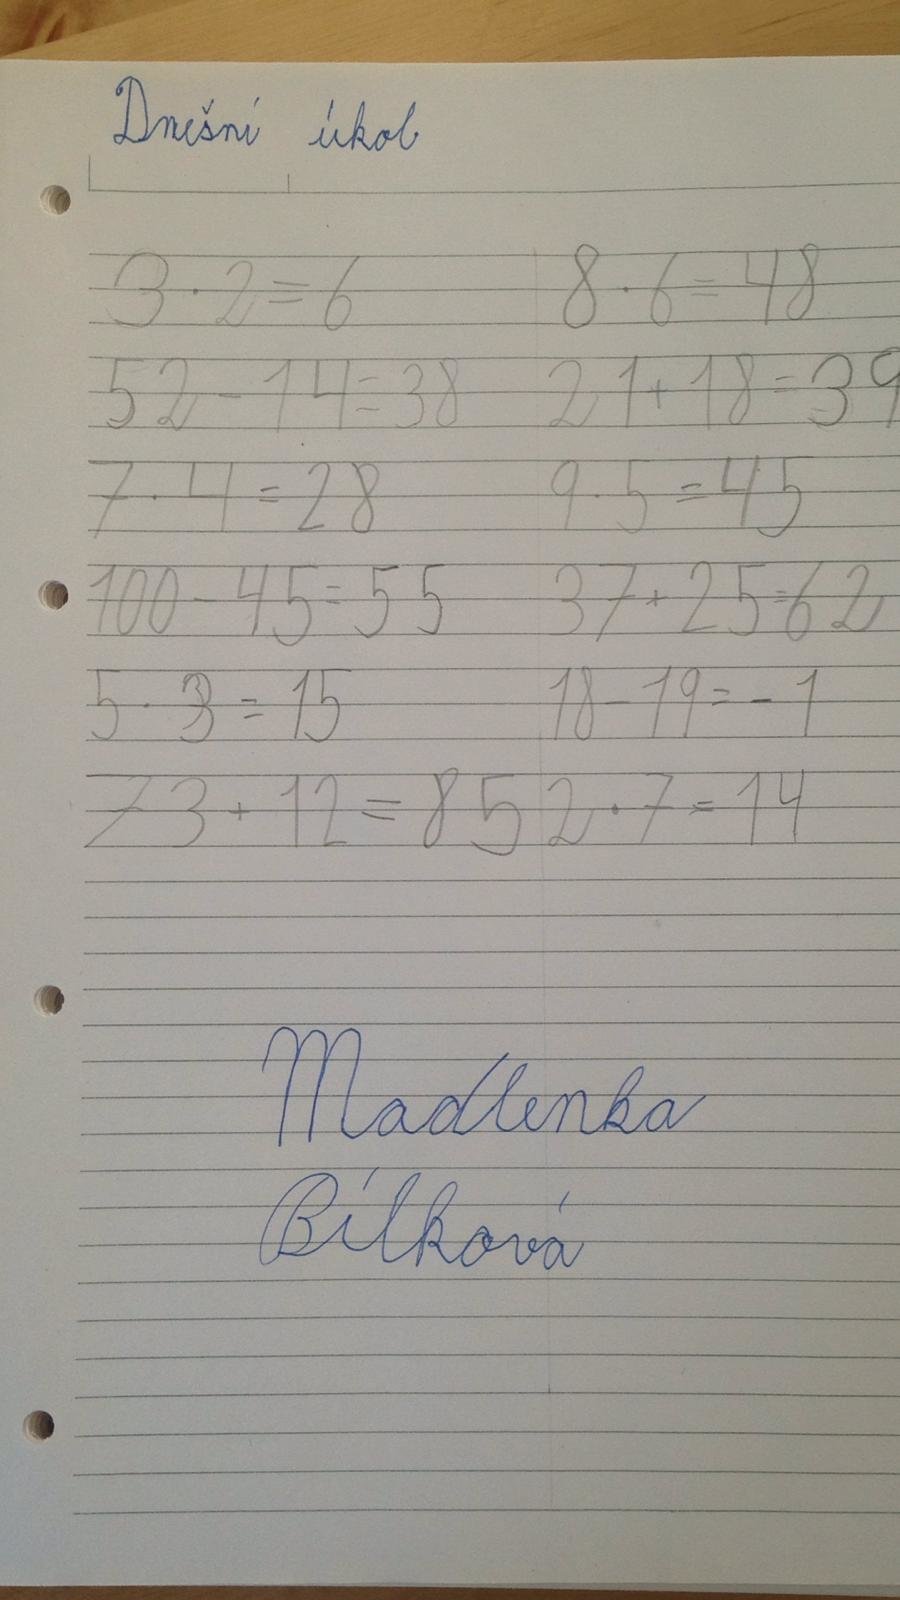 Dnešní úkol
3·2=6 8·6=48
52-14=38 21+18=39
7·4=28 9·5=45
100-45=55 37+25=62
5·3=15 18-19=-1
73+12=85 2·7=14
Madlenka
Bílková